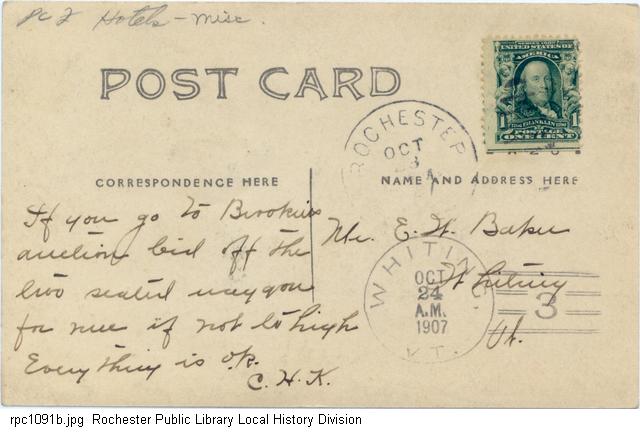 Hotels - Misc
POST CARD
UNITED STATES OF
AMERICA
FRANKLIN
1 POSTAGE 1
ONE CENT
ROCHESTER
OCT
CORRESPONDENCE HERE
NAME AND ADDRESS HERE
If you go to
auction bid off the
two seated wagon
for me if not to high
Everything is o.k.
C. H. K.
Mr. E. W. Baker
Whiting
Vt.
WHITING
OCT
24
A.M.
1907
VT.
3
rpc1091b.jpg Rochester Public Library Local History Division